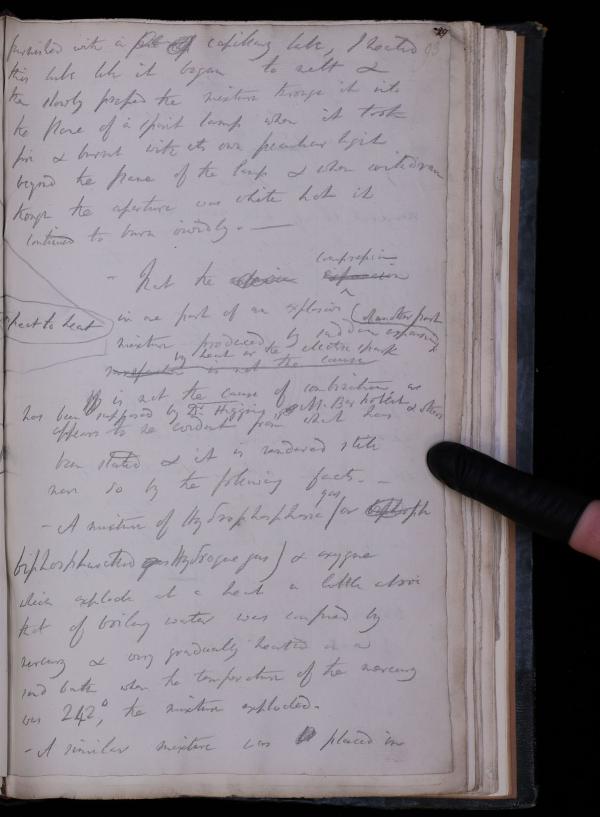 furnished with a capillary tube, I heated
this tube till it began to melt &
then slowly passed the mixture through it into
the flame of a spirit lamp when it took
fire & burnt with its own peculiar light
beyond the flame of the lamp & when withdrawn
though the aperture was white hot it
continued to burn inwardly. —
compression
- That the expansion
in one part of an explosive (& another part
respect to heat
mixture produced by sudden expansion &
by heat or the electric spark
is not the cause
It is not the cause of combination, as
has been supposed by Dr. Higgins, M. Berthollet & others
appears to be evident from what has
been stated & it is rendered still
more so by the following facts. —
- A mixture of Hydrophosphoric gas (or
biphosphuretted Hydrogene gas) & oxygene
which explode at a heat a little above
that of boiling water was confined by
mercury & very gradually heated in a
sand bath when the temperature of the mercury
was 242°, the mixture exploded.
- A similar mixture was placed in